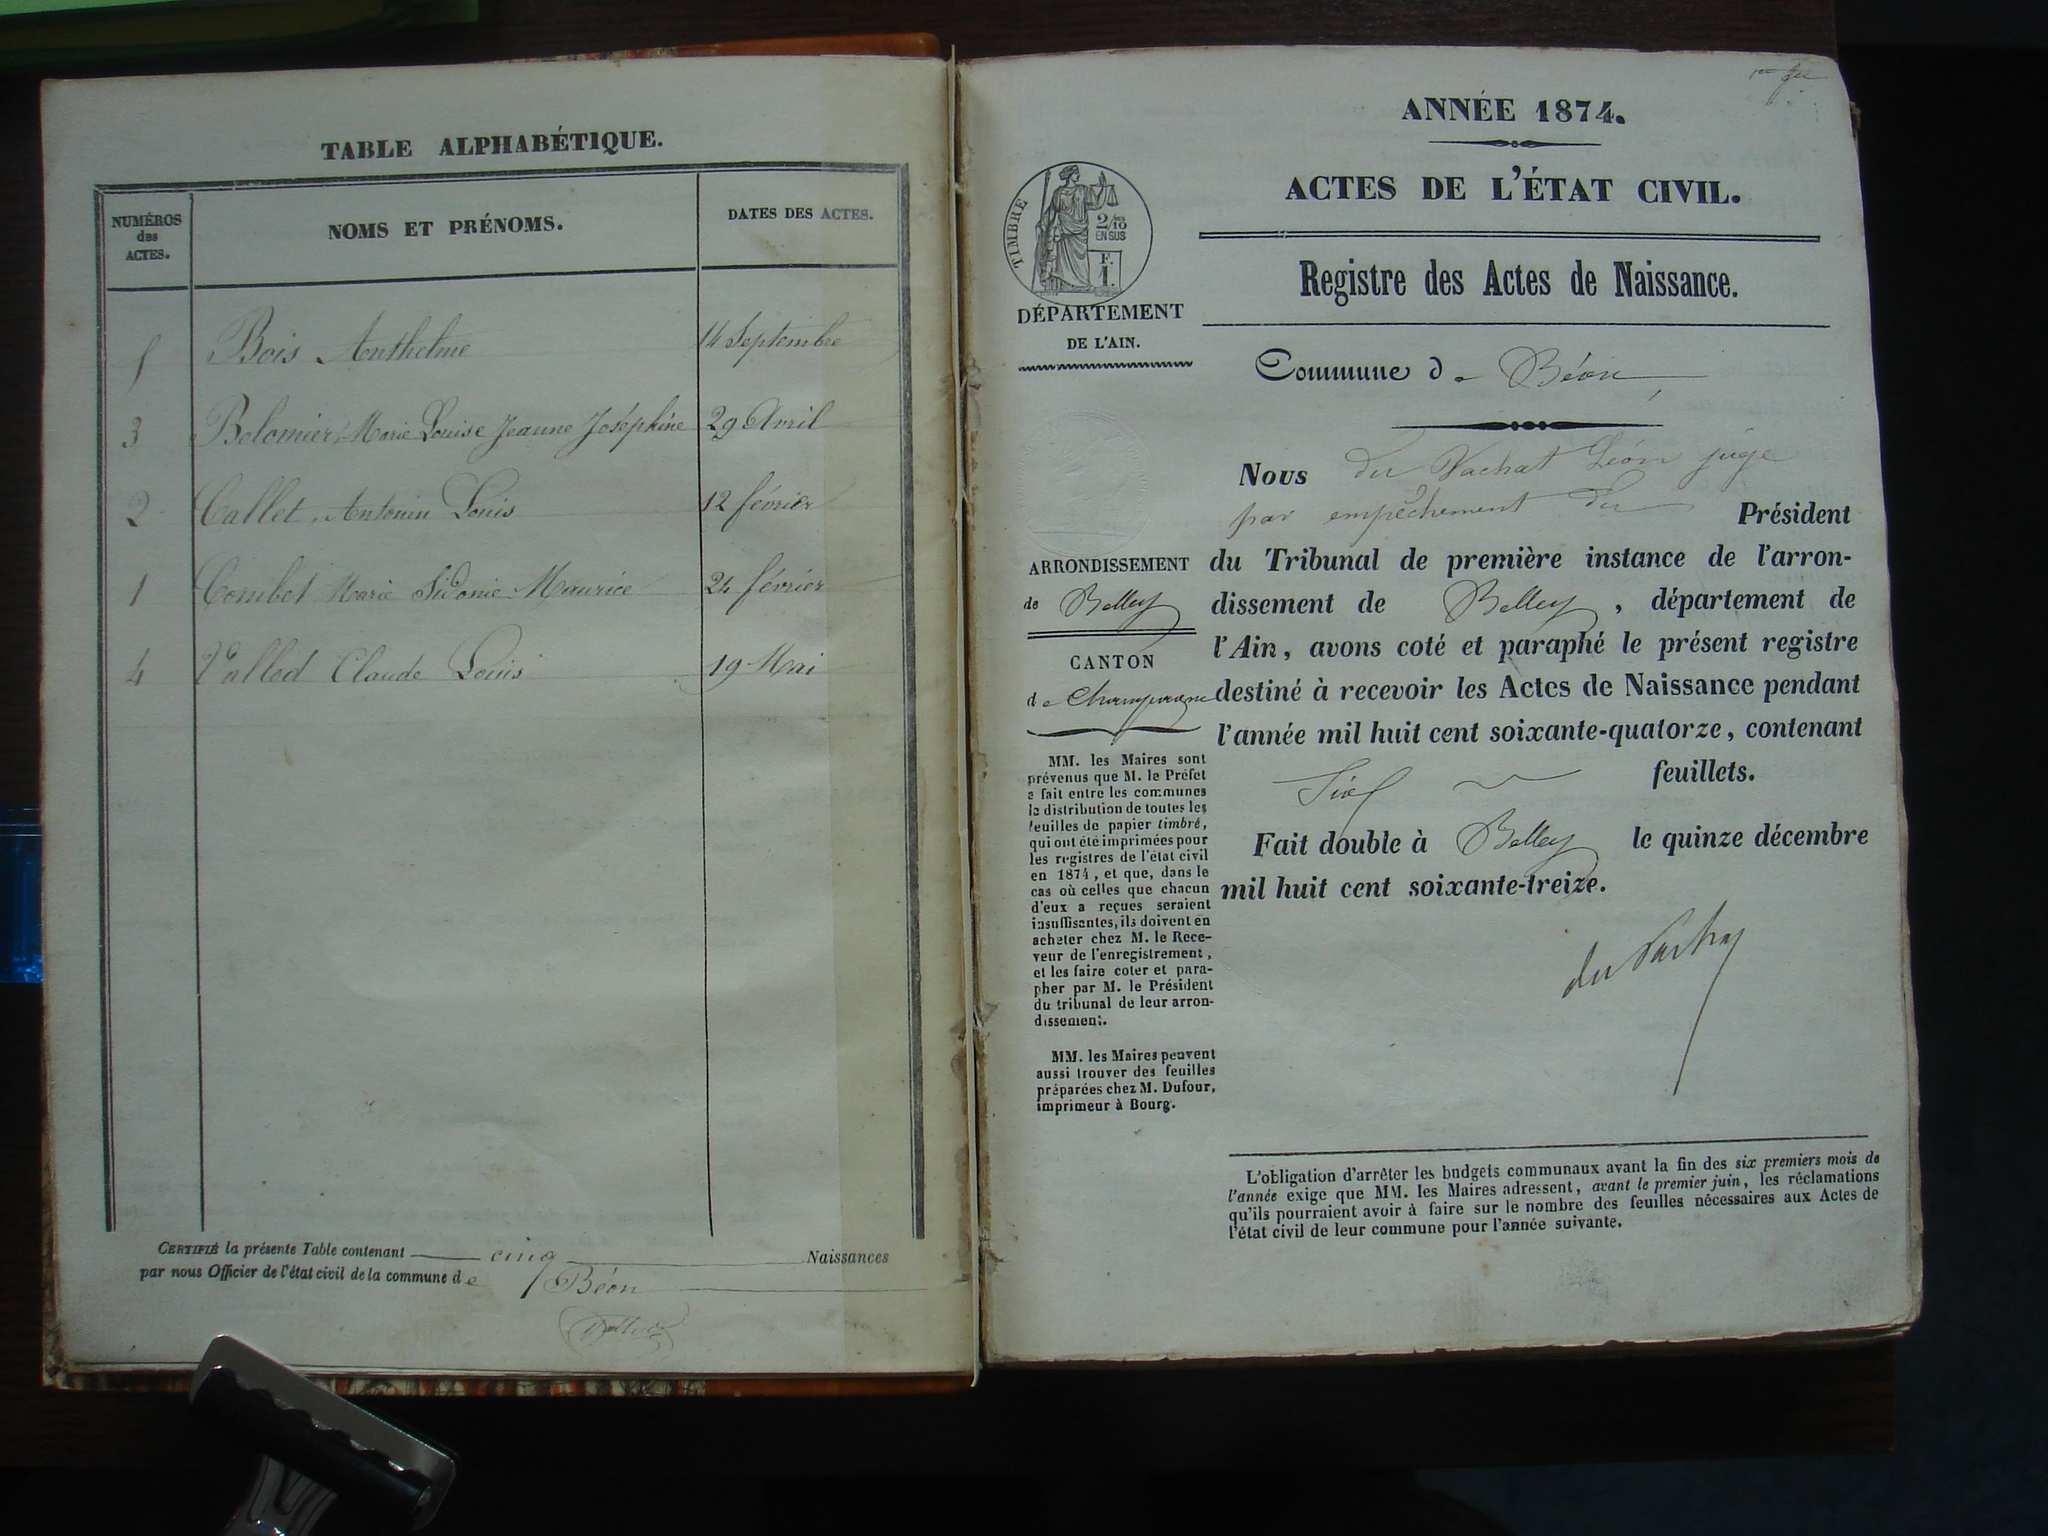 TABLE ALPHABÉTIQUE.
NUMÉROS des ACTES.
NOMS ET PRÉNOMS.
DATES DES ACTES.
5 Bois Anthelme 14 Septembre
3 Bolomier Marie Louise Jeanne Joséphine 29 Avril
2 Callet Antonin Louis 12 février
1 Combet Marie Sidonie Maurice 24 février
4 Vallod Claude Louis 19 Mai
CERTIFIÉ la présente Table contenant cinq Naissances
par nous Officier de l'état civil de la commune de Béon
ANNÉE 1874.
ACTES DE L'ÉTAT CIVIL.
Registre des Actes de Naissance.
TIMBRE
2/10 EN SUS
F. 1.
DÉPARTEMENT
DE L'AIN.
Commune de Béon
Nous du Vachat Léon juge
par empêchement du Président
ARRONDISSEMENT
de Belley
CANTON
de Champagne
du Tribunal de première instance de l'arron-
dissement de Belley, département de
l'Ain, avons coté et paraphé le présent registre
destiné à recevoir les Actes de Naissance pendant
l'année mil huit cent soixante-quatorze, contenant
Six feuillets.
Fait double à Belley le quinze décembre
mil huit cent soixante-treize.
du Vachat
MM. les Maires sont
prévenus que M. le Préfet
a fait entre les communes
la distribution de toutes les
feuilles de papier timbré,
qui ont été imprimées pour
les registres de l'état civil
en 1874, et que, dans le
cas où celles que chacun
d'eux a reçues seraient
insuffisantes, ils doivent en
acheter chez M. le Rece-
veur de l'enregistrement,
et les faire coter et para-
pher par M. le Président
du tribunal de leur arron-
dissement.
MM. les Maires peuvent
aussi trouver des feuilles
préparées chez M. Dufour,
imprimeur à Bourg.
L'obligation d'arrêter les budgets communaux avant la fin des six premiers mois de
l'année exige que MM. les Maires adressent, avant le premier juin, les réclamations
qu'ils pourraient avoir à faire sur le nombre des feuilles nécessaires aux Actes de
l'état civil de leur commune pour l'année suivante.